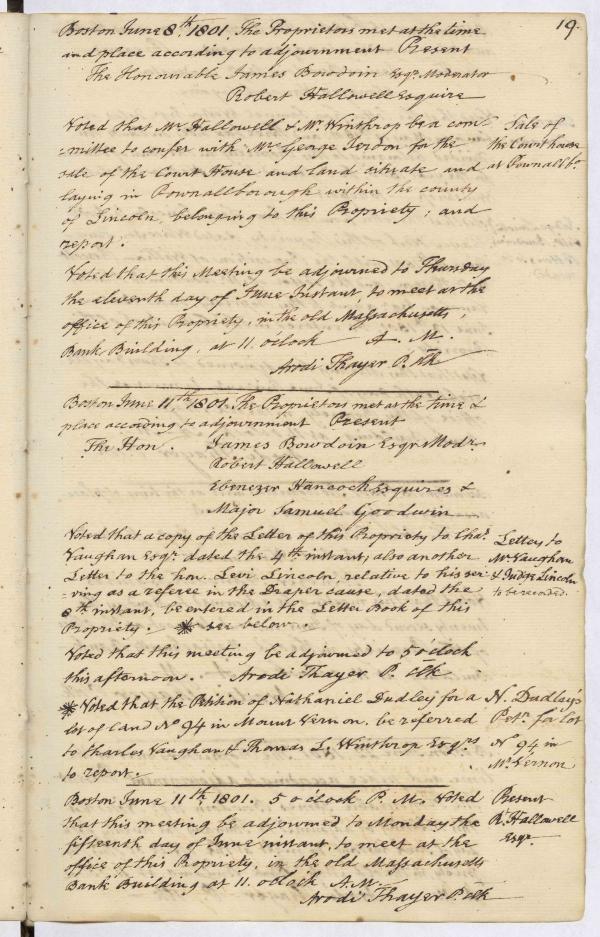 19.
Boston June 8th. 1801. The Proprietors met at the time
and place according to adjournment Present
The Honourable James Bowdoin Esqr. Moderator
Robert Hallowell Esquire
Voted that Mr. Hallowell & Mr. Winthrop be a com-
=mittee to confer with Mr. George for the
sale of the Court House and land situate and
laying in Pownallborough within the county
of Lincoln, belonging to this Propriety; and
report.
Sale of
the Court house
at Pownallbo.
Voted that this Meeting be adjourned to Thursday
the eleventh day of June Instant, to meet at the
office of this Propriety, in the old Massachusetts,
Bank Building, at 11. o'clock A. M.
Arodi Thayer P. Clk
Boston June 11th. 1801. The Proprietors met at the time &
place according to adjournment Present
The Hon. James Bowdoin Esqr. Modr.
Robert Hallowell
Ebenezer Hancock Esquires &
Major Samuel Goodwin
Voted that a copy of the Letter of this Propriety to Chas.
Vaughan Esqr. dated the 4th. instant, also another
Letter to the hon. Levi Lincoln, relative to his ser-
=ving as a referee in the Draper cause, dated the
8th instant, be entered in the Letter Book of this
Propriety. * see below.
Letters to
Mr. Vaughan
& Judge Lincoln
to be recorded.
Voted that this meeting be adjourned to 5 o'clock
this afternoon. Arodi Thayer P. Clk
* Voted that the Petition of Nathaniel Dudley for a
lot of land No 94 in Mount Vernon. be referred
to Charles Vaughan & Thomas L. Winthrop Esqrs
to report.
N. Dudley's
Petn. for lot
No 94 in
Mt. Vernon
Boston June 11th. 1801. 5 o'clock P. M. Voted
that this meeting be adjourned to Monday the
fifteenth day of June instant, to meet at the
office of this Propriety, in the old Massachusetts
Bank Building at 11. o'clock A.M.
Arodi Thayer P. Clk
Present
Rt. Hallowell
Esqr.